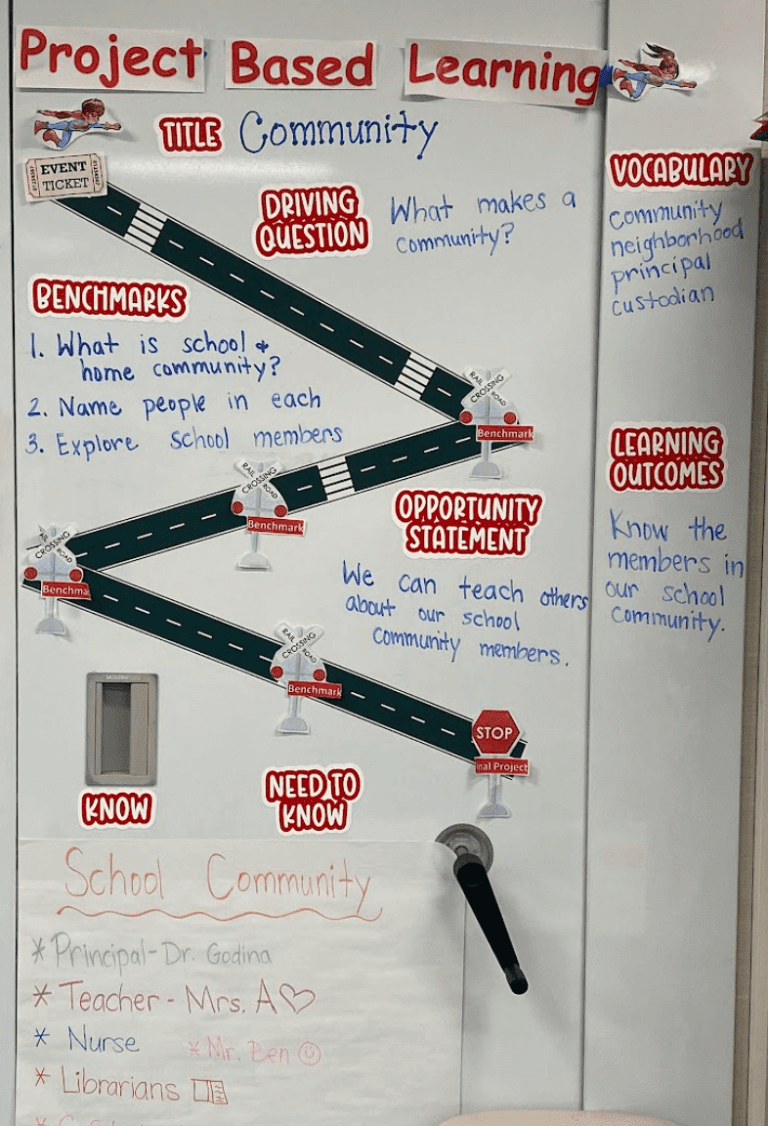 Project Based Learning
TITLE Community
EVENT
TICKET
DRIVING
QUESTION
What makes a
community?
VOCABULARY
community
neighborhood
principal
custodian
BENCHMARKS
1. What is school &
home community?
2. Name people in each
3. Explore school members
RAIL
CROSSING
ROAD
Benchmark
RAIL
CROSSING
ROAD
Benchmark
CROSSING
ROAD
Benchma
RAIL
CROSSING
ROAD
Benchmark
STOP
inal Project
OPPORTUNITY
STATEMENT
We can teach others
about our school
community members.
LEARNING
OUTCOMES
Know the
members in
our school
community.
KNOW
NEED TO
KNOW
School Community
* Principal - Dr. Godina
* Teacher - Mrs. A ♡
* Nurse
* Mr. Ben ☺
* Librarians